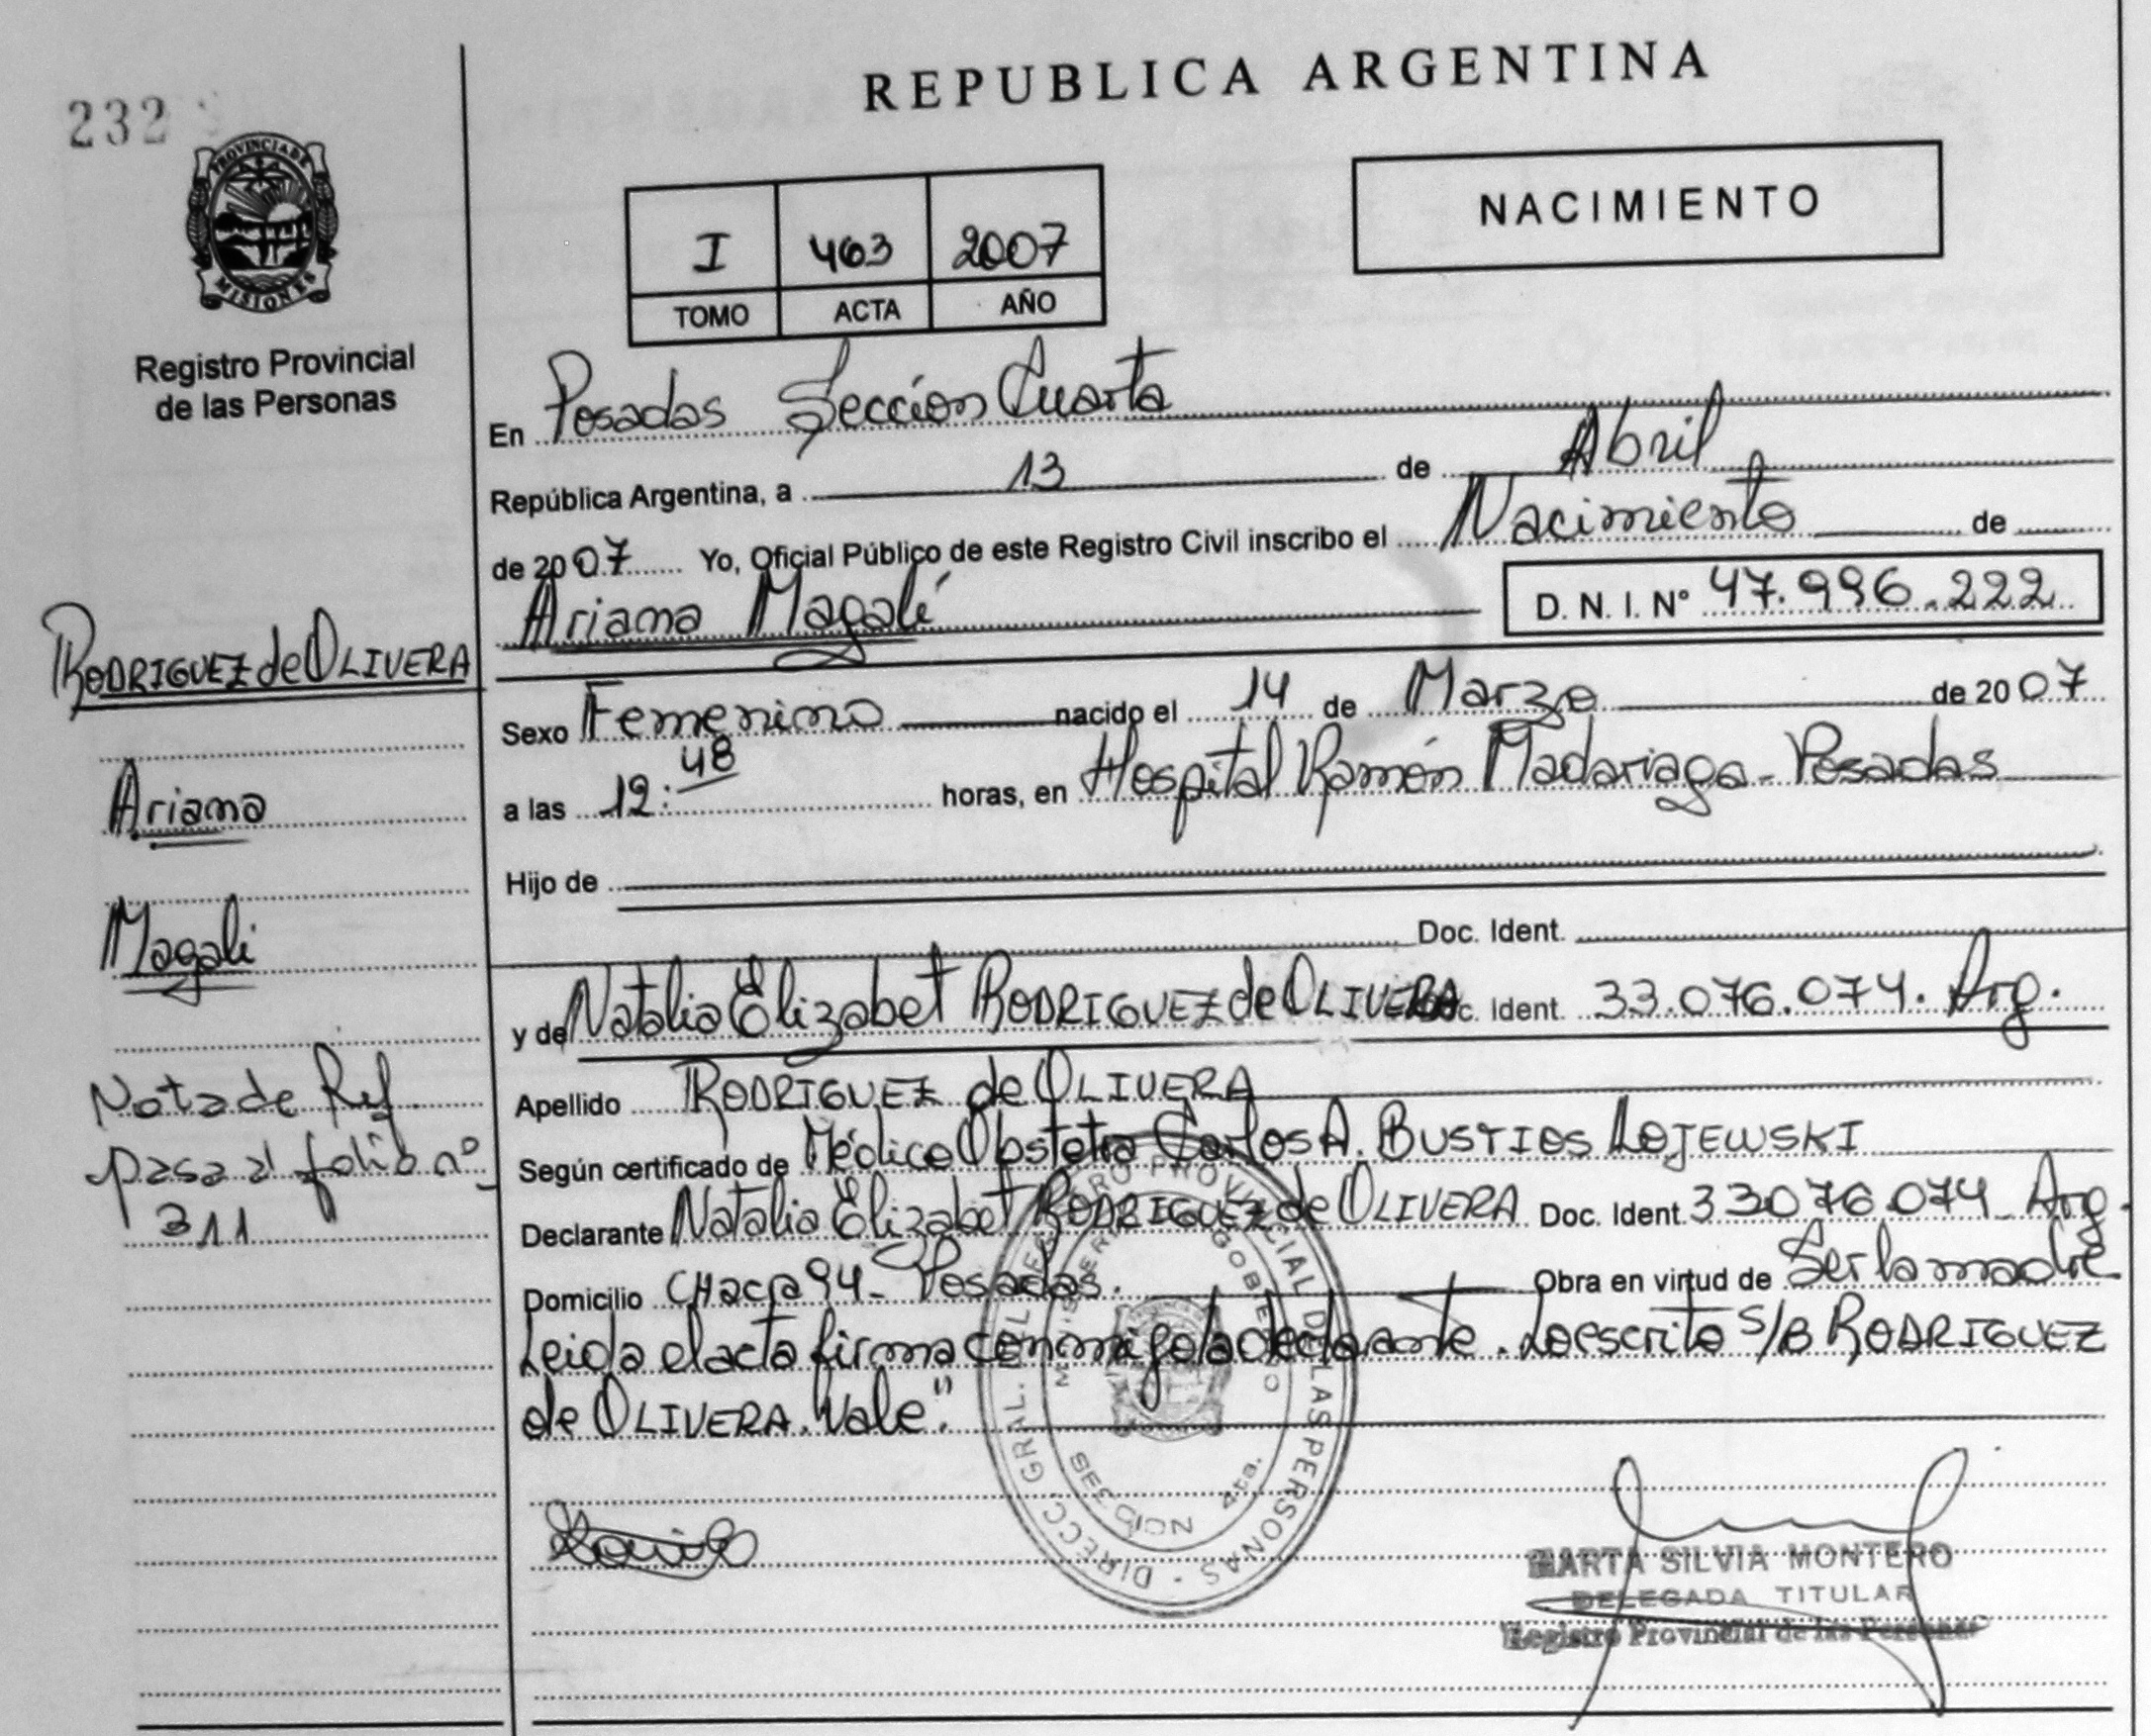 232
REPUBLICA ARGENTINA
PROVINCIA DE
MISIONES
Registro Provincial
de las Personas
I 463 2007
TOMO ACTA AÑO
NACIMIENTO
En Posadas Sección Cuarta
República Argentina, a 13 de Abril
de 2007 Yo, Oficial Público de este Registro Civil inscribo el Nacimiento de
Ariana Magalí D. N. I. N° 47.996.222
RODRIGUEZ de OLIVERA
Ariana
Magali
Nota de Ref.
pasa al folio nº
311
Sexo Femenino nacido el 14 de Marzo de 2007
a las 12:48 horas, en Hospital Ramón Madariaga - Posadas
Hijo de
Doc. Ident.
y de Natalia Elizabet RODRIGUEZ de OLIVERA Doc. Ident. 33.076.074. Arg.
Apellido RODRIGUEZ de OLIVERA
Según certificado de Médico Obstetra Carlos A. BUSTIOS LOJEWSKI
Declarante Natalia Elizabet RODRIGUEZ de OLIVERA Doc. Ident. 33076.074 - Arg.
Domicilio CHacra 94 - Posadas. Obra en virtud de Ser la madre
Leida el acta firma conmigo la declarante. Lo escrito s/B RODRIGUEZ
de OLIVERA. Vale."
DIRECC. GRAL. DEL REGISTRO PROVINCIAL DE LAS PERSONAS
MINISTERIO GOBIERNO
SECCION 4ta.
MARTA SILVIA MONTERO
DELEGADA TITULAR
Registro Provincial de las Personas